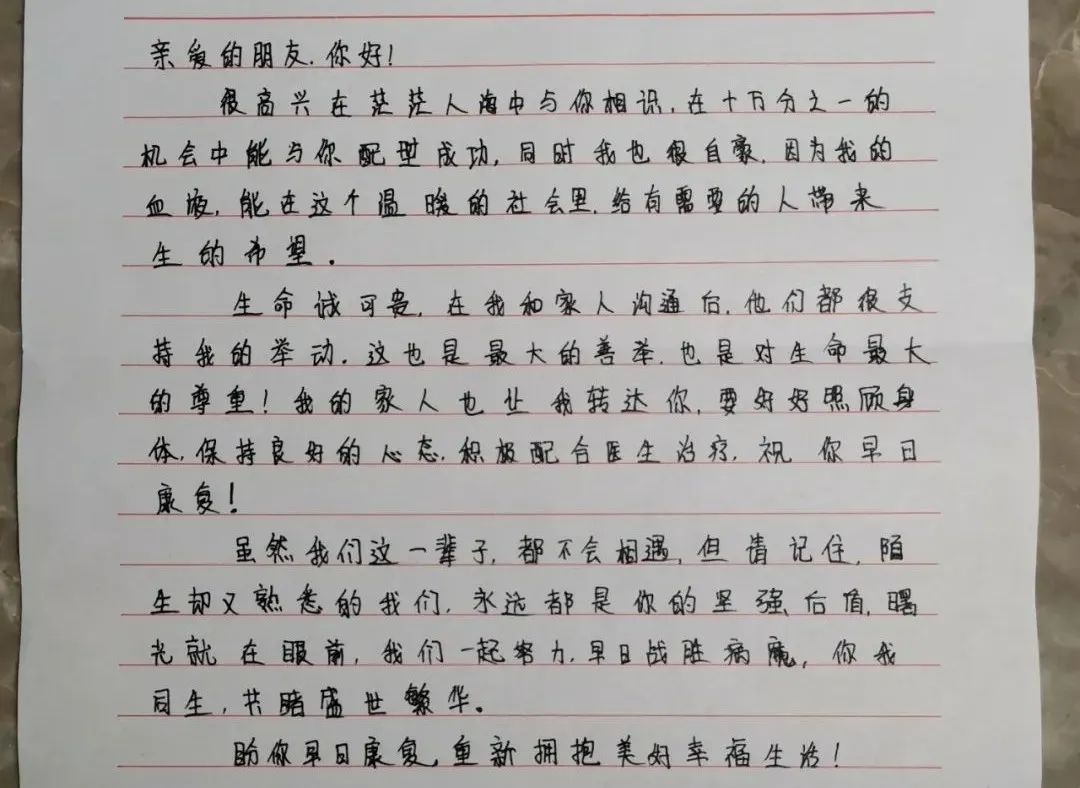 亲爱的朋友.你好!
很高兴在茫茫人海中与你相识,在十万分之一的
机会中能与你配型成功,同时我也很自豪,因为我的
血液,能在这个温暖的社会里,给有需要的人带来
生的希望.
生命诚可贵,在我和家人沟通后,他们都很支
持我的举动.这也是最大的善举,也是对生命最大
的尊重!我的家人也让我转达你,要好好照顾身
体,保持良好的心态,积极配合医生治疗,祝你早日
康复!
虽然我们这一辈子,都不会相遇,但请记住,陌
生却又熟悉的我们,永远都是你的坚强后盾,曙
光就在眼前,我们一起努力,早日战胜病魔,你我
同生,共睹盛世繁华。
盼你早日康复,重新拥抱美好幸福生活!